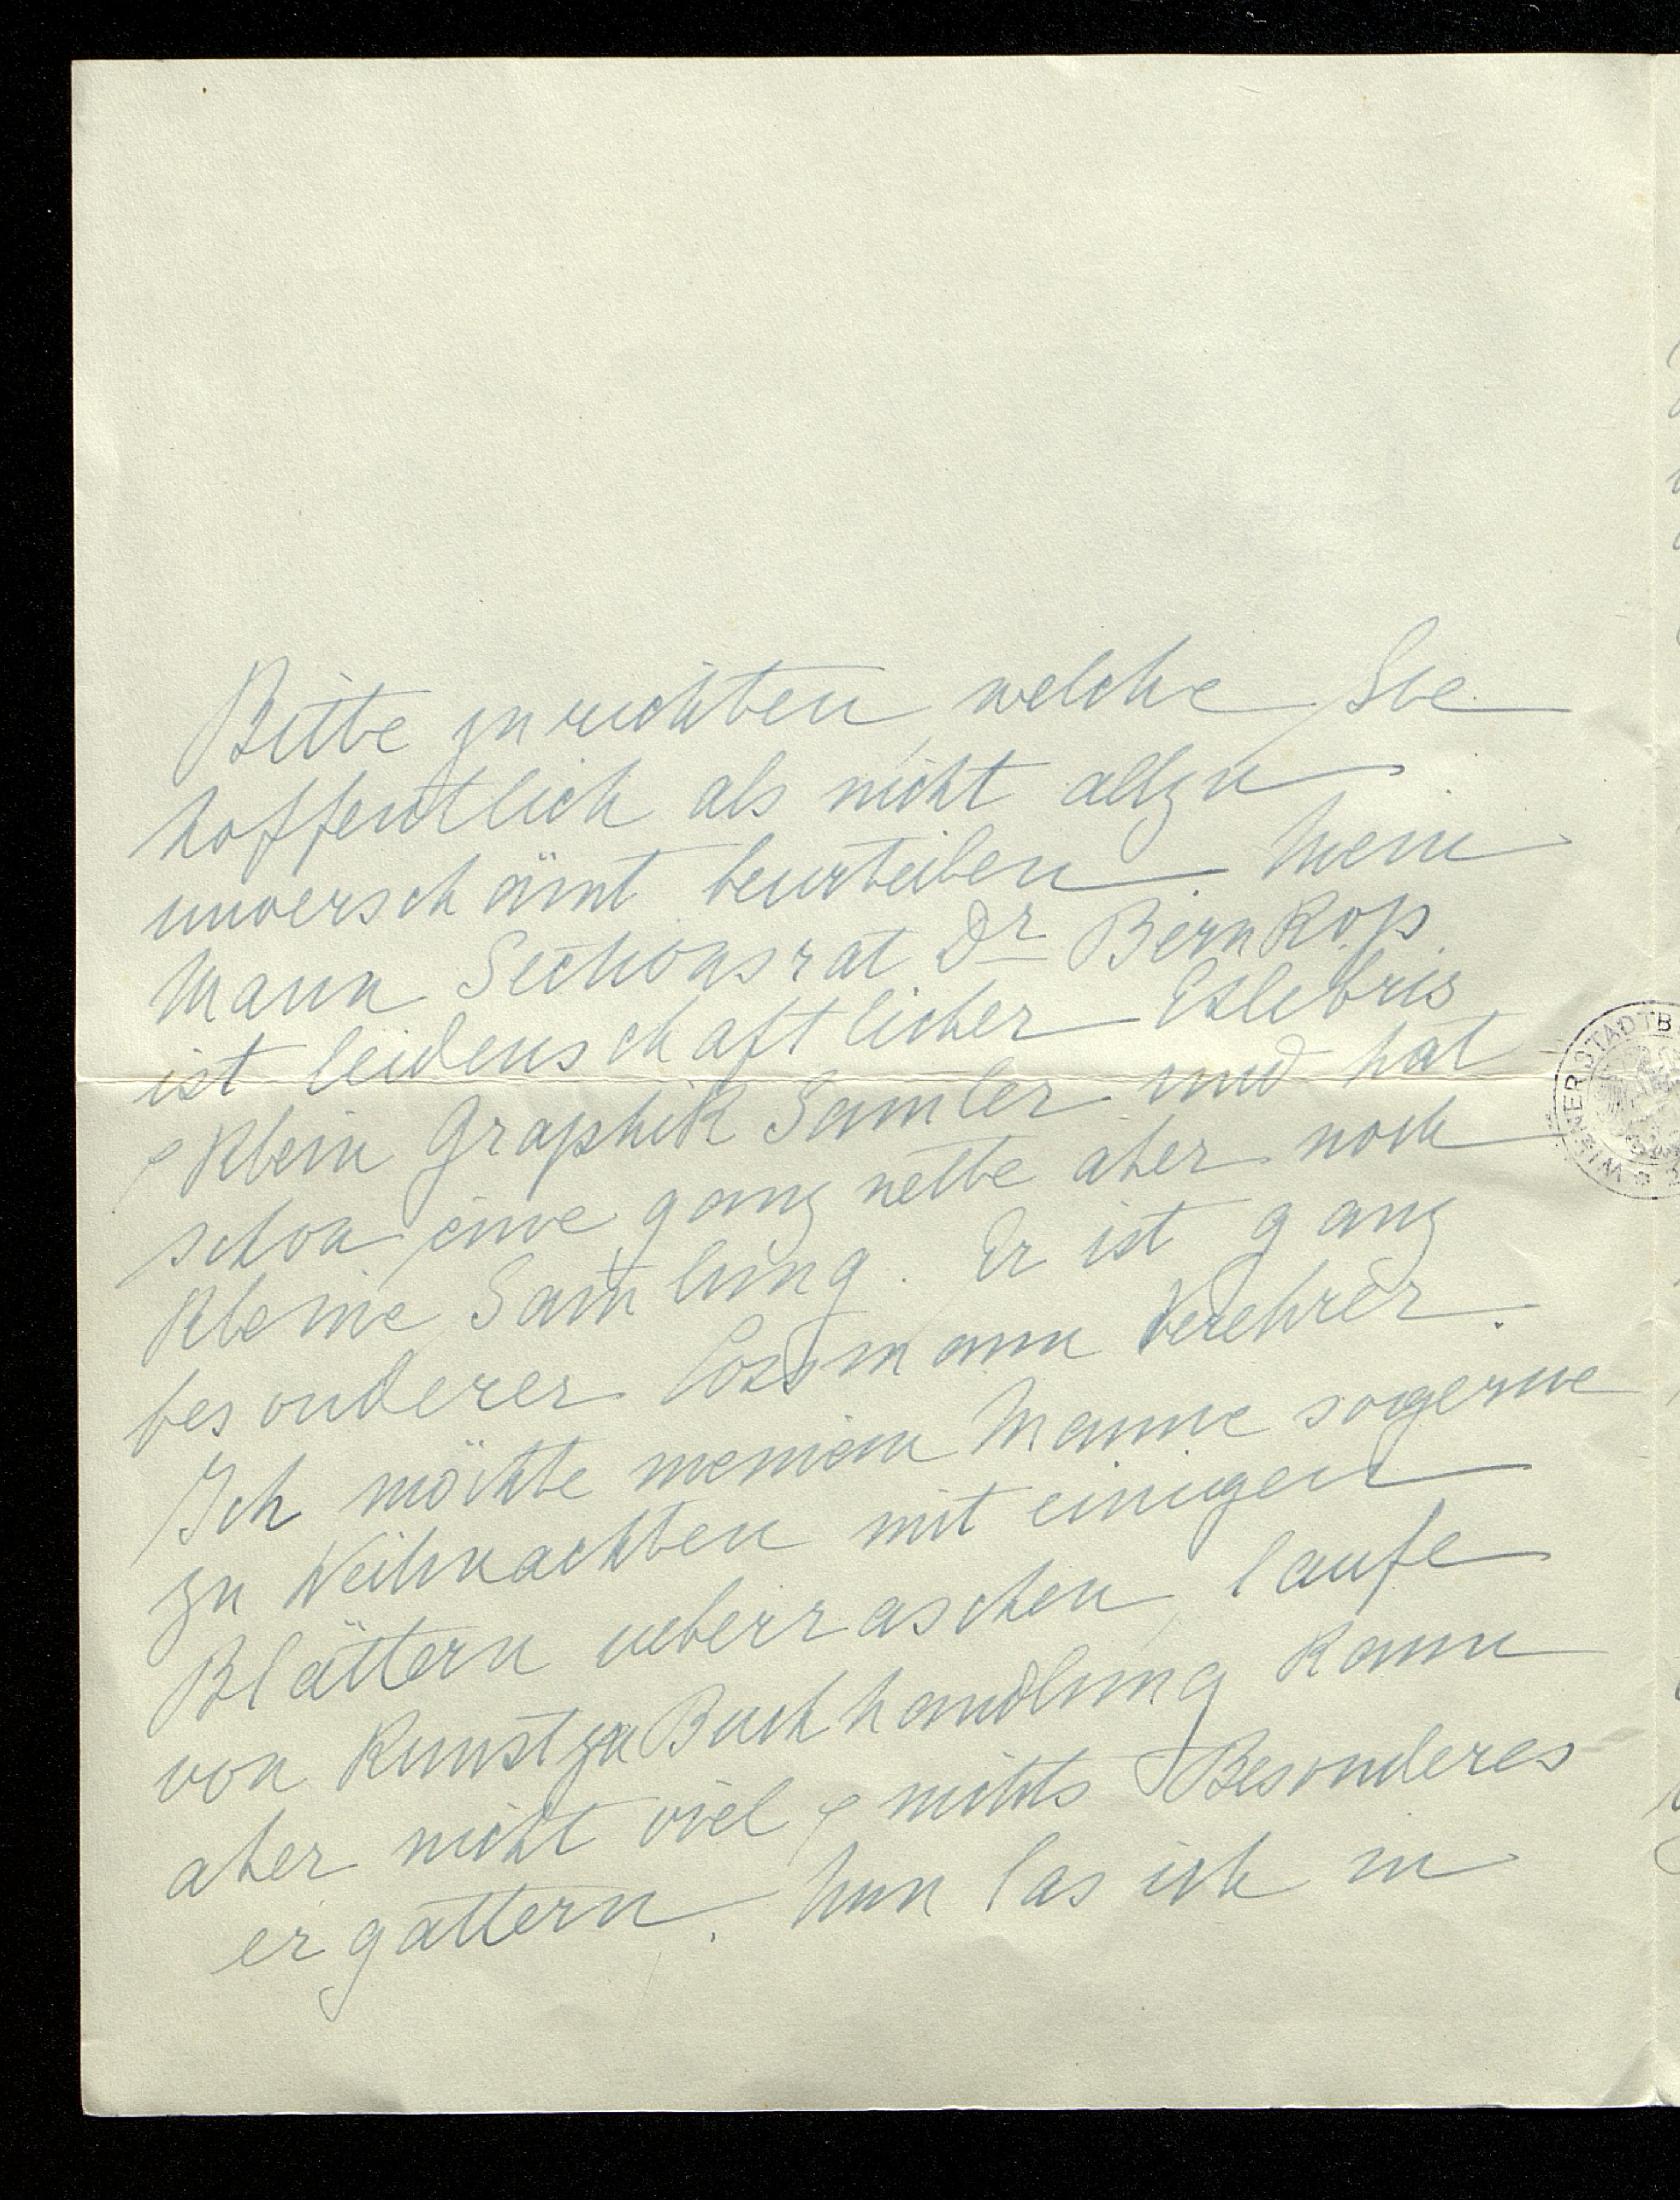 Bitte zu richten, welche Sie
hoffentlich als nicht allzu
unverschämt beurteilen. Mein
Mann Sectionsrat Dr Bernkop
ist leidenschaftlicher Exlebris
& Klein Graphik Samler und hat
schon eine ganz nette aber noch
kleine Sam̄lung. Er ist ganz
besonderer Cossmann Verehrer.
Ich möchte meinem Manne so gerne
zu Weihnachten mit einigen
Blättern ueberraschen, laufe
von Kunst zu Buchhandlung kann
aber nicht viel & nichts Besonderes
ergattern. Nun las ich in
WIENER STADTB